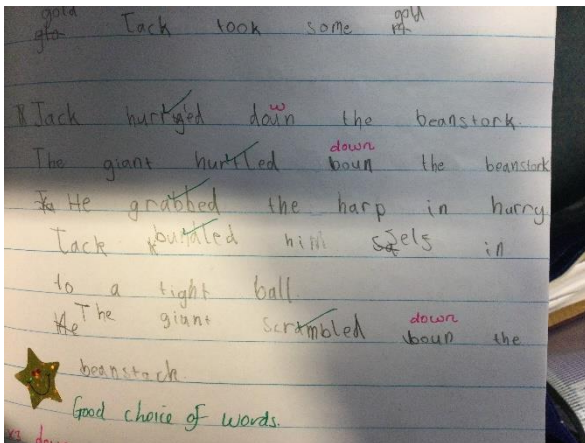 gold gold
Jack took some
Jack hurryed down the beanstork.
w
down
The giant hurtled boun the beanstork
He grabbed the harp in hurry
Jack bundled him sels in
to a tight ball.
down
The giant scrambled boun the
beanstack.
Good choice of words.